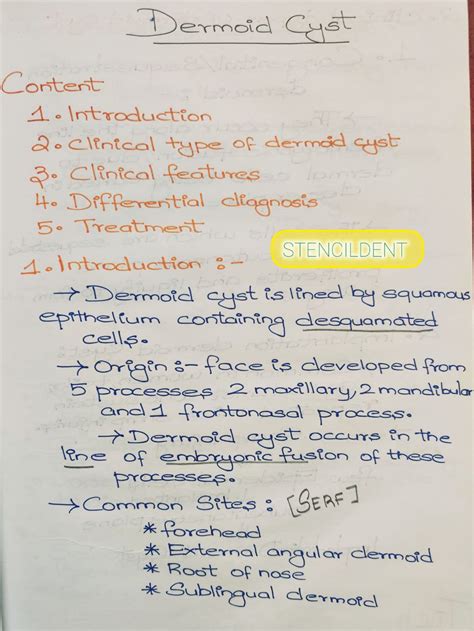 Dermoid Cyst
Content
1. Introduction
2. Clinical type of dermoid cyst
3. Clinical features
4. Differential diagnosis
5. Treatment
STENCILDENT
1. Introduction :-
→ Dermoid cyst is lined by squamous
epithelium containing desquamated
cells.
→ Origin :- face is developed from
5 processes 2 maxillary, 2 mandibular
and 1 frontonasal process.
→ Dermoid cyst occurs in the
line of embryonic fusion of these
processes.
→ Common Sites : [SERF]
* forehead
* External angular dermoid
* Root of nose
* Sublingual dermoid